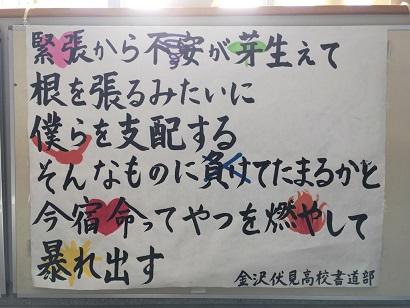 緊張から不安が芽生えて
根を張るみたいに
僕らを支配する
そんなものに負けてたまるかと
今宿命ってやつを燃やして
暴れ出す
金沢伏見高校書道部